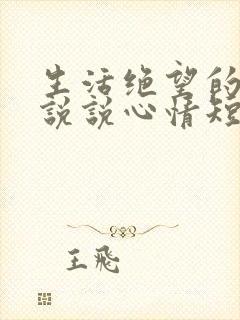 生活绝望的
说说心情短
王飛